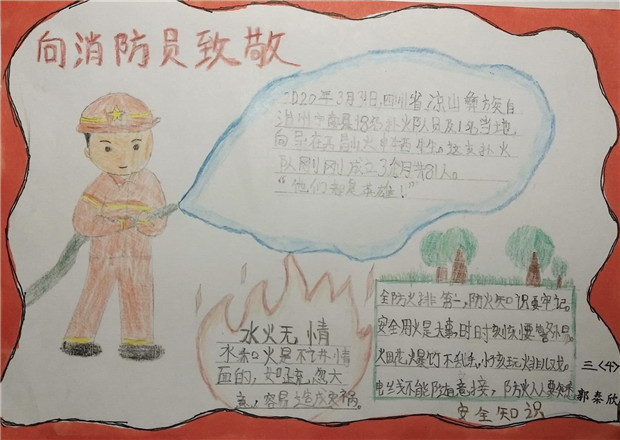 向消防员致敬
2020年3月31日,四川省凉山彝族自
治州宁南县18名扑火队员及1名当地
向导在西昌山火中牺牲。这支扑火
队刚刚成立3个月共81人。
“他们都是英雄!”
水火无情
水和火是不讲情
面的,如疏忽大
意,容易造成灾祸。
全防火排第一,防火知识要牢记。
安全用火是大事,时时刻刻要警
烟花爆竹不乱丢,小孩玩火
电线不能随意接,防火人人要
安全知识
三〈4〉
郭秦欣